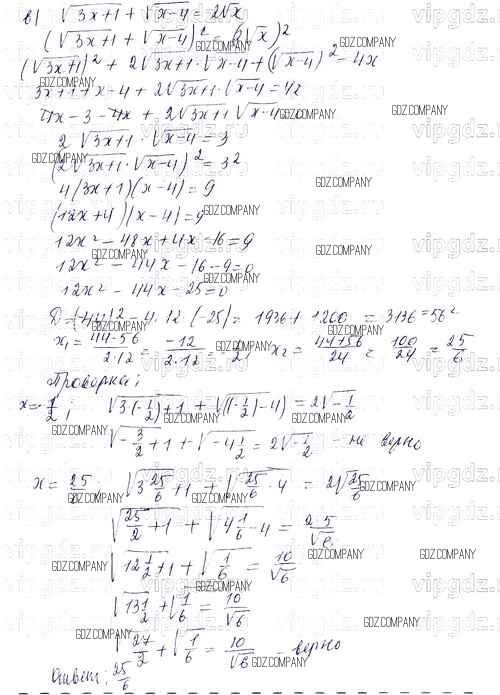 в) √3x+1 + √x-4 = 2√x
(√3x+1 + √x-4)² = (2√x)²
(√3x+1)² + 2√3x+1 · √x-4 + (√x-4)² = 4x
3x+1+x-4 + 2√3x+1 · √x-4 = 4x
4x-3-4x + 2√3x+1 · √x-4
2√3x+1 · √x-4 = 3
(2√3x+1 · √x-4)² = 3²
4(3x+1)(x-4) = 9
(12x+4)(x-4) = 9
12x² - 48x + 4x - 16 = 9
12x² - 44x - 16 - 9 = 0
12x² - 44x - 25 = 0
D = (-44)² - 4 · 12 · (-25) = 1936 + 1200 = 3136 = 56²
x₁ = 44-56/2·12 = -12/2·12 = -1/2; x₂ = 44+56/24 = 100/24 = 25/6
Проверка:
x = -1/2; √3(-1/2)+1 + √(-1/2)-4) = 2√-1/2
√-3/2+1 + √-4 1/2 = 2√-1/2 - не верно
x = 25/6; √3 25/6 +1 + √25/6 - 4 = 2√25/6
√25/2 +1 + √4 1/6 - 4 = 2·5/√6
√12 1/2 + 1 + √1/6 = 10/√6
√13 1/2 + √1/6 = 10/√6
√27/2 + √1/6 = 10/√6 - верно
Ответ: 25/6
GDZ.COMPANY
vipgdz.ru